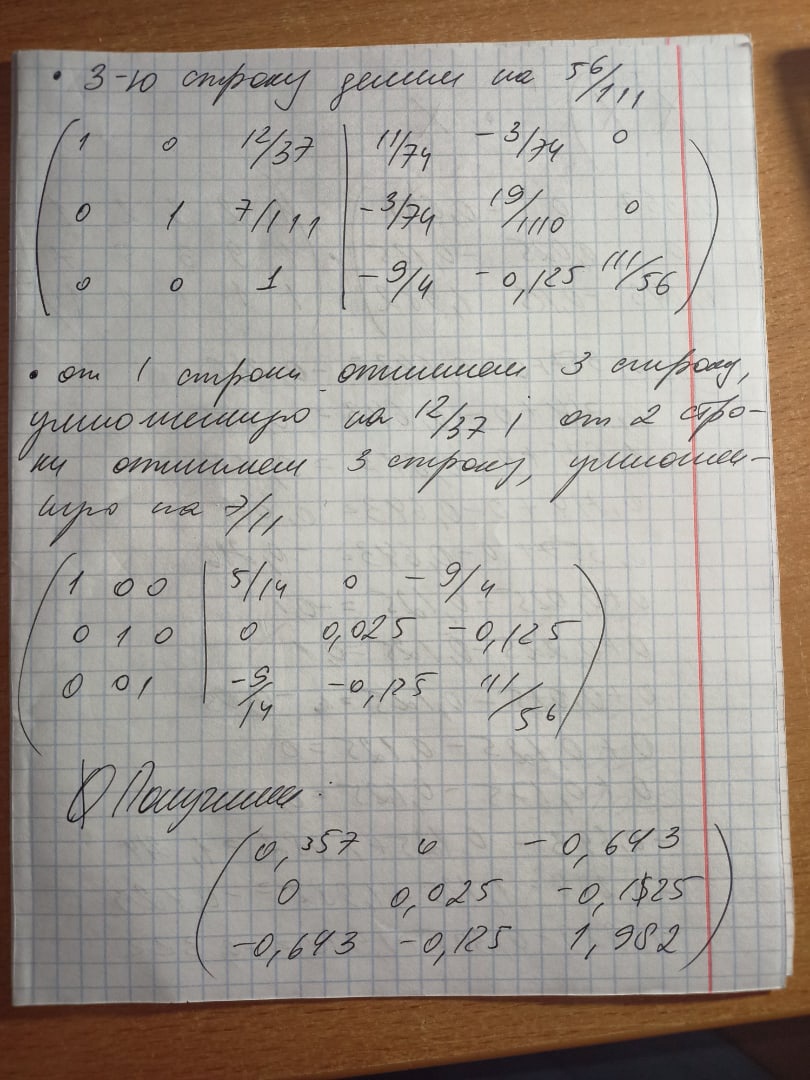 • 3-ю строку делим на 56/111
1 0 12/37 | 11/74 -3/74 0
0 1 7/111 | -3/74 19/1110 0
0 0 1 | -9/4 -0,125 111/56
• от 1 строки отнимаем 3 строку,
умноженную на 12/37 ; от 2 стро-
ки отнимаем 3 строку, умножен-
ную на 7/11
1 0 0 | 5/14 0 -9/4
0 1 0 | 0 0,025 -0,125
0 0 1 | -9/14 -0,125 111/56
Получим:
0,357 0 -0,643
0 0,025 -0,125
-0,643 -0,125 1,982